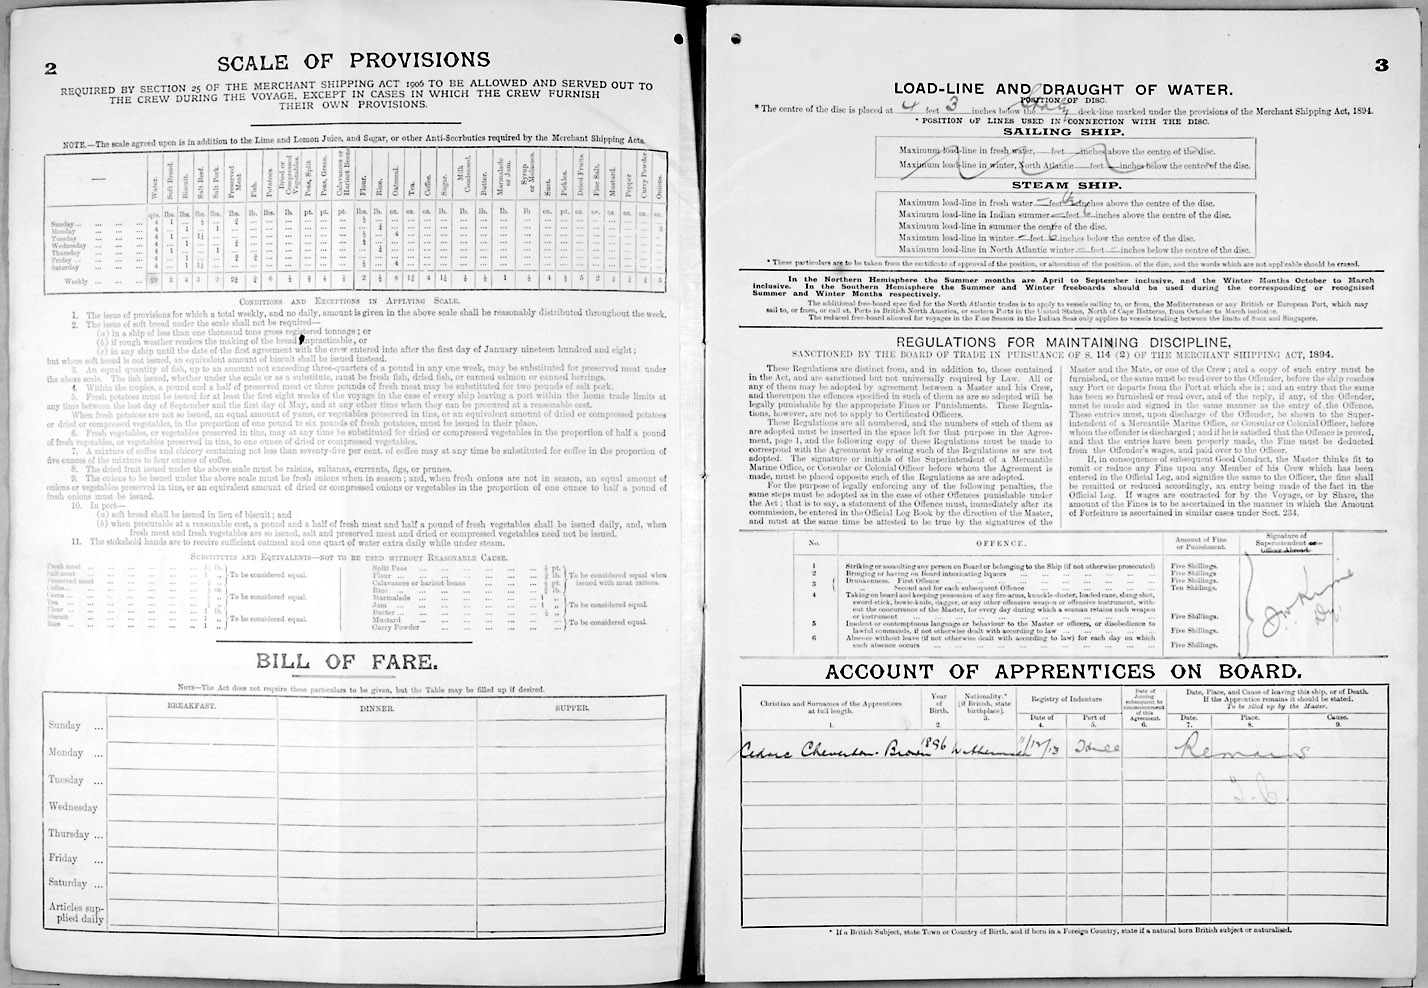 2
SCALE OF PROVISIONS
REQUIRED BY SECTION 25 OF THE MERCHANT SHIPPING ACT 1906 TO BE ALLOWED AND SERVED OUT TO
THE CREW DURING THE VOYAGE, EXCEPT IN CASES IN WHICH THE CREW FURNISH
THEIR OWN PROVISIONS.
NOTE.—The scale agreed upon is in addition to the Lime and Lemon Juice, and Sugar, or other Anti-Scorbutics required by the Merchant Shipping Acts.
Water. Soft Bread. Biscuit. Salt Beef. Salt Pork. Preserved Meat. Fish. Potatoes. Dried or Compressed Vegetables. Peas, Split. Peas, Green. Calavances or Haricot Beans. Flour. Rice. Oatmeal. Tea. Coffee. Sugar. Milk Condensed. Butter. Marmalade or Jam. Syrup or Molasses. Suet. Pickles. Dried Fruits. Fine Salt. Mustard. Pepper Curry Powder. Onions.
Sunday
Monday
Tuesday
Wednesday
Thursday
Friday
Saturday
Weekly
CONDITIONS AND EXCEPTIONS IN APPLYING SCALE.
1. The issue of provisions for which a total weekly, and no daily, amount is given in the above scale shall be reasonably distributed throughout the week.
2. The issue of soft bread under the scale shall not be required—
(a) in a ship of less than one thousand tons gross registered tonnage; or
(b) if rough weather renders the making of the bread impracticable, or
(c) in any ship until the date of the first agreement with the crew entered into after the first day of January nineteen hundred and eight;
but where soft bread is not issued, an equivalent amount of biscuit shall be issued instead.
3. An equal quantity of fish, up to an amount not exceeding three-quarters of a pound in any one week, may be substituted for preserved meat under
the above scale. The fish issued, whether under the scale or as a substitute, must be fresh fish, dried fish, or canned salmon or canned herrings.
4. Within the tropics, a pound and a half of preserved meat or three pounds of fresh meat may be substituted for two pounds of salt pork.
5. Fresh potatoes must be issued for at least the first eight weeks of the voyage in the case of every ship leaving a port within the home trade limits at
any time between the last day of September and the first day of May, and at any other time when they can be procured at a reasonable cost.
When fresh potatoes are not so issued, an equal amount of yams, or vegetables preserved in tins, or an equivalent amount of dried or compressed potatoes
or dried or compressed vegetables, in the proportion of one pound to six pounds of fresh potatoes, must be issued in their place.
6. Fresh vegetables, or vegetables preserved in tins, may at any time be substituted for dried or compressed vegetables in the proportion of half a pound
of fresh vegetables, or vegetables preserved in tins, to one ounce of dried or compressed vegetables.
7. A mixture of coffee and chicory containing not less than seventy-five per cent. of coffee may at any time be substituted for coffee in the proportion of
five ounces of the mixture to four ounces of coffee.
8. The dried fruit issued under the above scale must be raisins, sultanas, currants, figs, or prunes.
9. The onions to be issued under the above scale must be fresh onions when in season; and, when fresh onions are not in season, an equal amount of
onions or vegetables preserved in tins, or an equivalent amount of dried or compressed onions or vegetables in the proportion of one ounce to half a pound of
fresh onions must be issued.
10. In port—
(a) soft bread shall be issued in lieu of biscuit; and
(b) when procurable at a reasonable cost, a pound and a half of fresh meat and half a pound of fresh vegetables shall be issued daily, and, when
fresh meat and fresh vegetables are so issued, salt and preserved meat and dried or compressed vegetables need not be issued.
11. The stokehold hands are to receive sufficient oatmeal and one quart of water extra daily while under steam.
SUBSTITUTES AND EQUIVALENTS—NOT TO BE USED WITHOUT REASONABLE CAUSE.
Fresh meat
Salt meat
Preserved meat
To be considered equal.
Coffee
Cocoa
Tea
To be considered equal.
Flour
Biscuit
Rice
To be considered equal.
Split Peas
Flour
Calavances or haricot beans
Rice
To be considered equal when
issued with meat rations.
Marmalade
Jam
Butter
To be considered equal.
Mustard
Curry Powder
To be considered equal.
BILL OF FARE.
NOTE—The Act does not require these particulars to be given, but the Table may be filled up if desired.
BREAKFAST. DINNER. SUPPER.
Sunday ...
Monday ...
Tuesday ...
Wednesday
Thursday ...
Friday ...
Saturday ...
Articles sup-
plied daily
3
LOAD-LINE AND DRAUGHT OF WATER.
POSITION OF DISC.
* The centre of the disc is placed at 4 feet 3 inches below the deck-line marked under the provisions of the Merchant Shipping Act, 1894.
* POSITION OF LINES USED IN CONNECTION WITH THE DISC.
SAILING SHIP.
Maximum load-line in fresh water, feet inches above the centre of the disc.
Maximum load-line in winter, North Atlantic feet inches below the centre of the disc.
STEAM SHIP.
Maximum load-line in fresh water — feet inches above the centre of the disc.
Maximum load-line in Indian summer — feet 6 inches above the centre of the disc.
Maximum load-line in summer the centre of the disc.
Maximum load-line in winter — feet 6 inches below the centre of the disc.
Maximum load-line in North Atlantic winter — feet — inches below the centre of the disc.
* These particulars are to be taken from the certificate of approval of the position, or alteration of the position, of the disc, and the words which are not applicable should be erased.
In the Northern Hemisphere the Summer months are April to September inclusive, and the Winter Months October to March
inclusive. In the Southern Hemisphere the Summer and Winter freeboards should be used during the corresponding or recognised
Summer and Winter Months respectively.
The additional free-board specified for the North Atlantic trades is to apply to vessels sailing to, or from, the Mediterranean or any British or European Port, which may
sail to, or from, or call at, Ports in British North America, or eastern Ports in the United States, North of Cape Hatteras, from October to March inclusive.
The reduced free-board allowed for voyages in the Fine Season in the Indian Seas only applies to vessels trading between the limits of Suez and Singapore.
REGULATIONS FOR MAINTAINING DISCIPLINE,
SANCTIONED BY THE BOARD OF TRADE IN PURSUANCE OF S. 114 (2) OF THE MERCHANT SHIPPING ACT, 1894.
These Regulations are distinct from, and in addition to, those contained
in the Act, and are sanctioned but not universally required by Law. All or
any of them may be adopted by agreement between a Master and his Crew,
and thereupon the offences specified in such of them as are so adopted will be
legally punishable by the appropriate Fines or Punishments. These Regula-
tions, however, are not to apply to Certificated Officers.
These Regulations are all numbered, and the numbers of such of them as
are adopted must be inserted in the space left for that purpose in the Agree-
ment, page 1, and the following copy of these Regulations must be made to
correspond with the Agreement by erasing such of the Regulations as are not
adopted. The signature or initials of the Superintendent of a Mercantile
Marine Office, or Consular or Colonial Officer before whom the Agreement is
made, must be placed opposite such of the Regulations as are adopted.
For the purpose of legally enforcing any of the following penalties, the
same steps must be adopted as in the case of other Offences punishable under
the Act; that is to say, a statement of the Offence must, immediately after its
commission, be entered in the Official Log Book by the direction of the Master,
and must at the same time be attested to be true by the signatures of the
Master and the Mate, or one of the Crew; and a copy of such entry must be
furnished, or the same must be read over to the Offender, before the ship reaches
any Port or departs from the Port at which she is; and an entry that the same
has been so furnished or read over, and of the reply, if any, of the Offender,
must be made and signed in the same manner as the entry of the Offence.
These entries must, upon discharge of the Offender, be shewn to the Super-
intendent of a Mercantile Marine Office, or Consular or Colonial Officer, before
whom the offender is discharged; and if he is satisfied that the Offence is proved,
and that the entries have been properly made, the Fine must be deducted
from the Offender's wages, and paid over to the Officer.
If, in consequence of subsequent Good Conduct, the Master thinks fit to
remit or reduce any Fine upon any Member of his Crew which has been
entered in the Official Log, and signifies the same to the Officer, the fine shall
be remitted or reduced accordingly, an entry being made of the fact in the
Official Log. If wages are contracted for by the Voyage, or by Share, the
amount of the Fines is to be ascertained in the manner in which the Amount
of Forfeiture is ascertained in similar cases under Sect. 234.
No. OFFENCE. Amount of Fine or Punishment. Signature of Superintendent or Officer Abroad.
1 Striking or assaulting any person on Board or belonging to the Ship (if not otherwise prosecuted) Five Shillings.
2 Bringing or having on Board intoxicating liquors Five Shillings.
3 Drunkenness. First Offence Five Shillings.
Second and for each subsequent Offence Ten Shillings.
4 Taking on board and keeping possession of any fire-arms, knuckle-duster, loaded cane, slung-shot,
sword-stick, bowie-knife, dagger, or any other offensive weapon or offensive instrument, with-
out the concurrence of the Master, for every day during which a seaman retains such weapon
or instrument Five Shillings.
5 Insolent or contemptuous language or behaviour to the Master or officers, or disobedience to
lawful commands, if not otherwise dealt with according to law Five Shillings.
6 Absence without leave (if not otherwise dealt with according to law) for each day on which
such absence occurs Five Shillings.
ACCOUNT OF APPRENTICES ON BOARD.
Christian and Surnames of the Apprentices at full length. 1. Year of Birth. 2. Nationality.* [if British, state birthplace]. 3. Registry of Indenture Date of 4. Port of 5. Date of Joining subsequent to commencement of this Agreement. 6. Date, Place, and Cause of leaving this ship, or of Death. If the Apprentice remains it should be stated. To be filled up by the Master. Date. 7. Place. 8. Cause. 9.
Cedric Cheverton-Brown 1896 11/12/13 Remains
* If a British Subject, state Town or Country of Birth, and if born in a Foreign Country, state if a natural born British subject or naturalised.